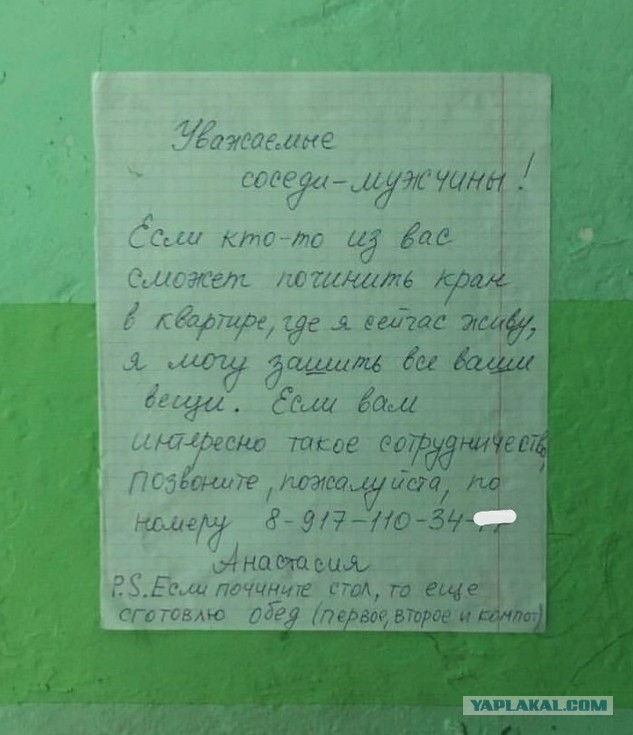 Уважаемые
соседи-мужчины!
Если кто-то из вас
сможет починить кран
в квартире, где я сейчас живу,
я могу зашить все ваши
вещи. Если вам
интересно такое сотрудничество,
позвоните, пожалуйста, по
номеру 8-917-110-34-
Анастасия
P.S. Если почините стол, то еще
сготовлю обед (первое, второе и компот)
YAPLAKAL.COM